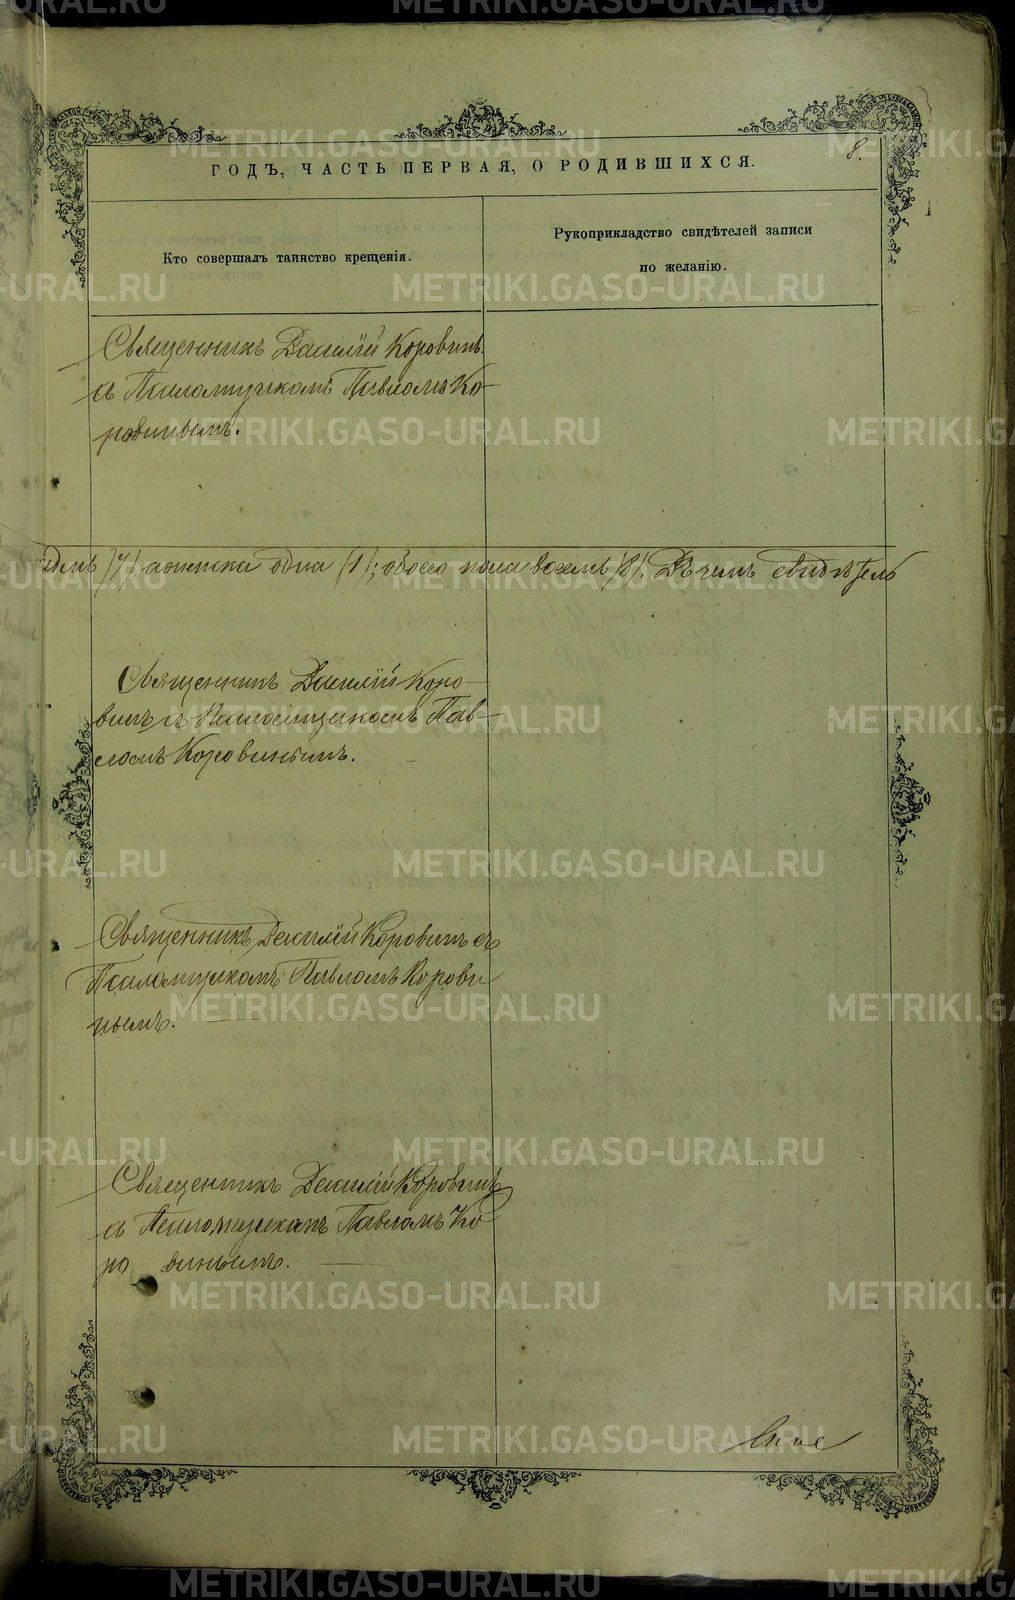 8.
ГОДЪ, ЧАСТЬ ПЕРВАЯ, О РОДИВШИХСЯ.
Кто совершалъ таинство крещенія.
Рукоприкладство свидѣтелей записи
по желанію.
Священникъ Василій Коровинъ
съ Псаломщикомъ Павломъ Ко-
ровинымъ.
одна (1); обоего пола восемь (8). Въ чемъ свидѣтель
Священникъ Василій Коро-
винъ съ Псаломщикомъ Пав-
ломъ Коровинымъ.
Священникъ Василій Коровинъ съ
Псаломщикомъ Павломъ Корови
нымъ.
Священникъ Василій Коровинъ
съ Псаломщикомъ Павломъ Ко
ро винымъ.
METRIKI.GASO-URAL.RU